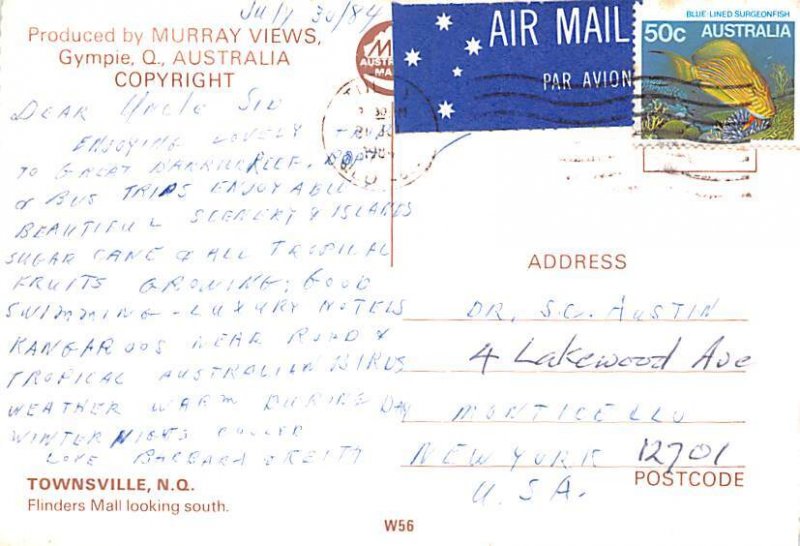 July 30/84
Produced by MURRAY VIEWS,
Gympie, Q., AUSTRALIA
COPYRIGHT
AIR MAIL
PAR AVION
BLUE-LINED SURGEONFISH
50c AUSTRALIA
DEAR UNCLE SID
ENJOYING LOVELY
TO GREAT BARRIER REEF. BOAT
& BUS TRIPS ENJOYABLE
BEAUTIFUL SCENERY & ISLANDS
SUGAR CANE & ALL TROPICAL
FRUITS GROWING; GOOD
SWIMMING - LUXURY HOTELS
KANGAROOS NEAR ROAD &
TROPICAL AUSTRALIAN BIRDS
WEATHER WARM DURING DAY
WINTER NIGHTS COOLER
LOVE BARBARA & KEITH
ADDRESS
DR. S.C. AUSTIN
4 Lakewood Ave
MONTICELLO
NEW YORK 12701
U.S.A.
POSTCODE
TOWNSVILLE, N.Q.
Flinders Mall looking south.
W56